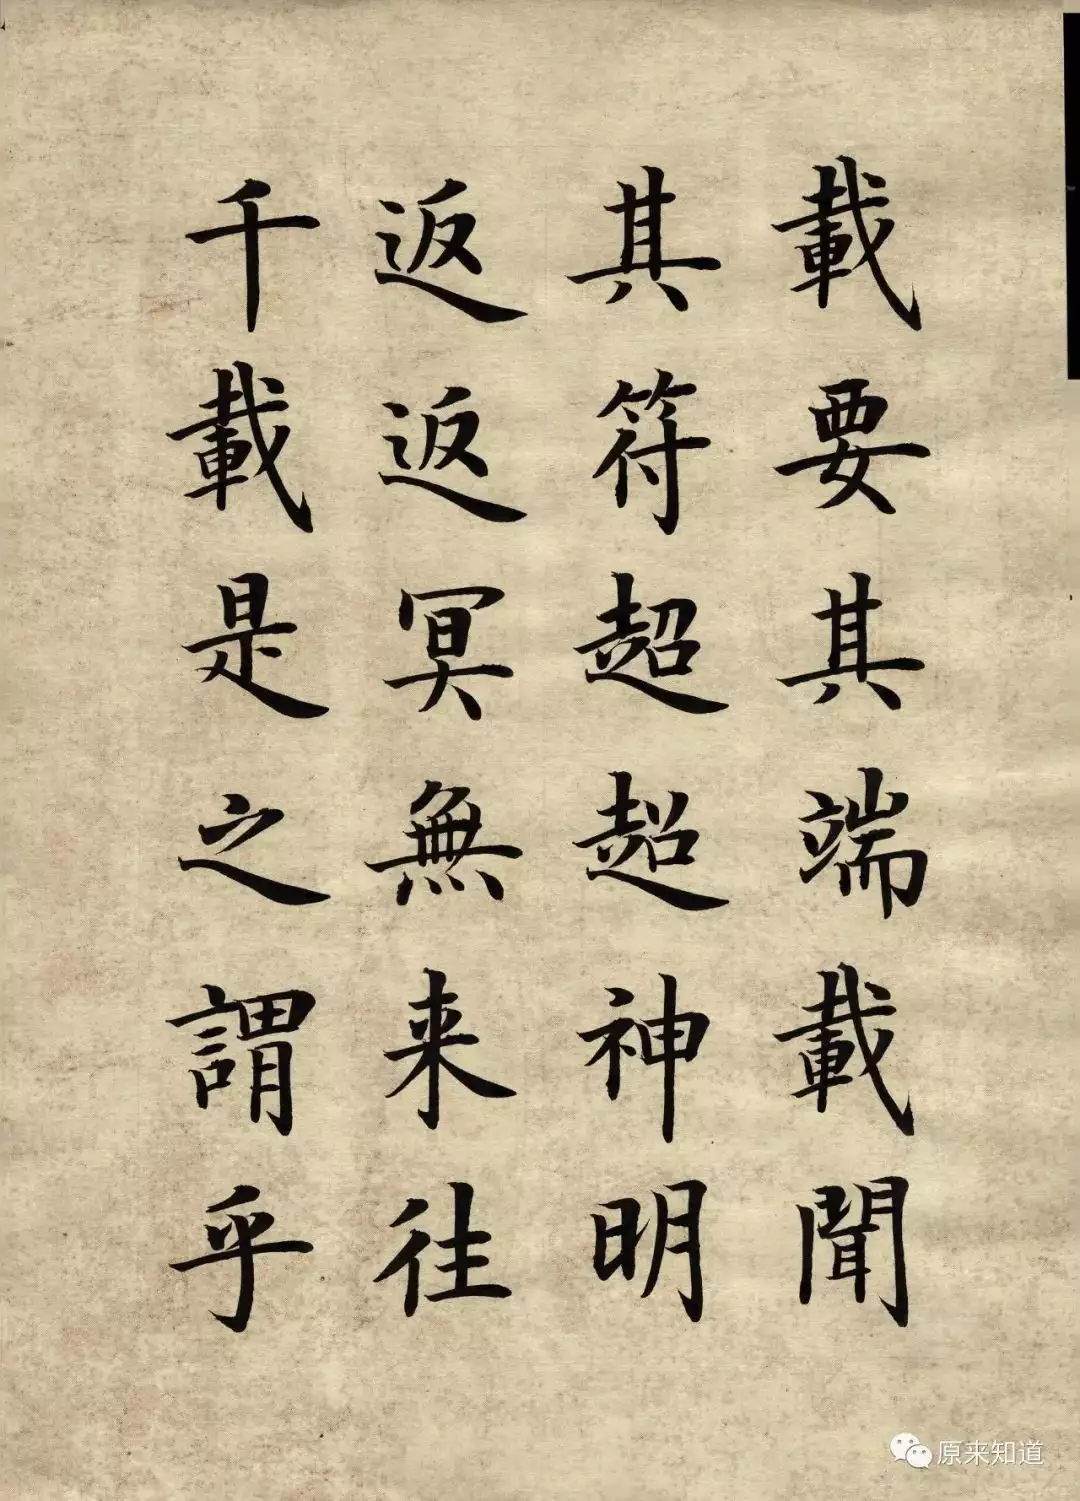 載要其端載聞
其符超超神明
返返冥無来往
千載是之謂乎
原来知道